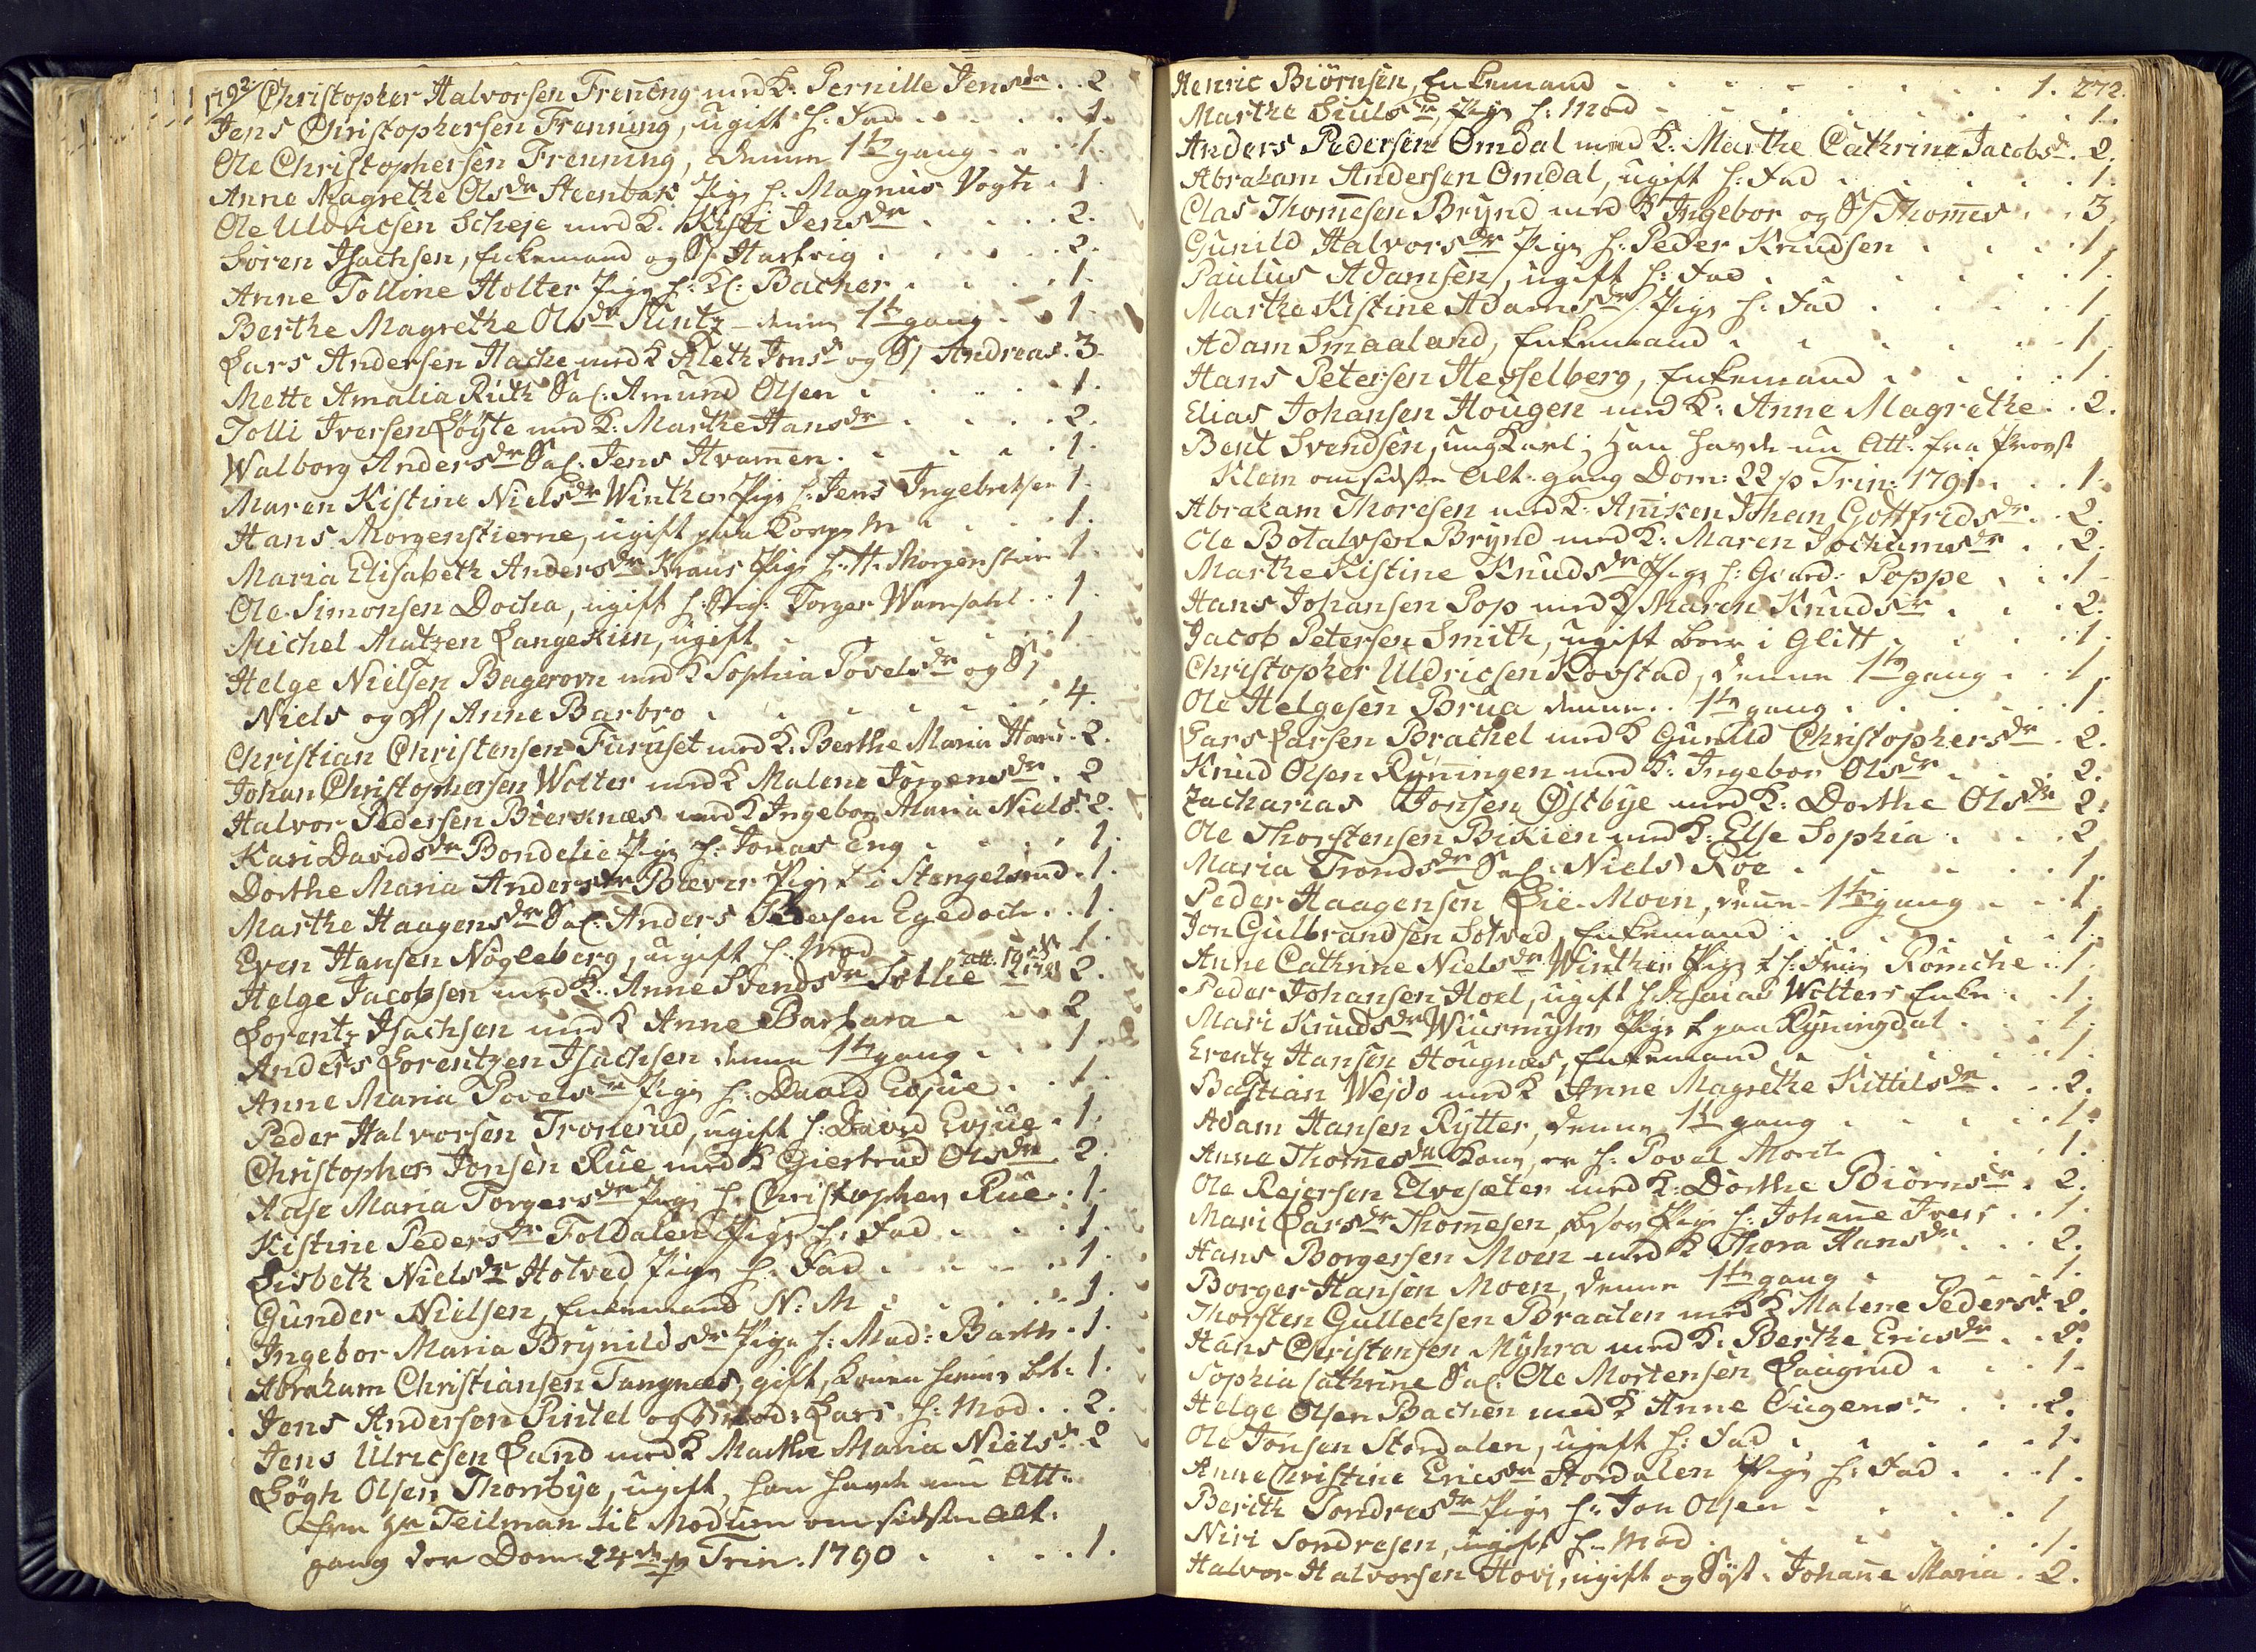 1792. Christopher Halvorsen Frening med K. Pernille Jensdr . . 2
Jens Christophersen Frenning, ugift h: Fad . . . . 1.
Ole Christophersen Frenning, denne 1te gang . . . 1.
Anne Magrethe Olsdr Steenbak Pige h: Magnus Vogt . 1.
Ole Uldricsen Scheje med K. Kisti Jensdr . . . . 2.
Sören Isachsen, Enkemand og S/ Hartvig . . . . 2.
Anne Tolline Holter Pige h: Bacher . . . . 1.
Berthe Magrethe Olsdr Stuntz denne 1te gang . . 1.
Lars Andersen Hache med K Aleth Jensd og S/ Andreas . 3.
Mette Amalia Ruth Sal: Amund Olsen . . . . 1.
Tolli Iversen Löyte med K: Marthe Hansdr . . . . 2.
Walborg Andersdr Sal: Jens Hvamen . . . . 1.
Maren Kistine Nielsdr Winther Pige h: Jens Ingebretsen 1.
Hans Morgenstierne, ugift . . . . 1.
Maria Elisabeth Andersdr Kraus Pige h: H. Morgenstiern 1.
Ole Simonsen Docka, ugift h: Torger Wamsahl . . 1.
Michel Matzen Langekiin, ugift . . . . 1.
Helge Nielsen Bagerovn med K Sophia Povelsdr og S/
Niels og D/ Anne Barbro . . . . 4.
Christian Christensen Furuset med K. Berthe Maria Hans . 2.
Johan Christophersen Wolter med K Malene Jörgensdr . 2
Halvor Pedersen Bierknæs med K Ingebor Maria Niels . 2.
Kari Davidsdr Bondelie Pige h: Jonas Eng . . . . 1.
Dorthe Maria Andersdr Bæver Pige t i Stengelsrud . 1.
Marthe Haagensdr Sal: Anders Pedersen Egedoch . . 1.
Even Hansen Nögleberg, ugift h: Mod . . . 1.
Helge Jacobsen med K. Anne Svendsdr Tollie 2.
Lorentz Isachsen med K Anne Barbara . . . 2
Anders Lorentzen Isachsen denne 1te gang . . . 1.
Anne Maria Povelsdr Pige h: David Evjue . . . 1.
Peder Halvorsen Tronerud, ugift h: David Evjue . 1.
Christopher Jonsen Rue med K Giertrud Olsdr 2.
Aase Maria Torgersdr Pige h: Christopher Rue . 1.
Kistine Pedersdr Foldalen Pige h: Fad . . . . 1.
Lisbeth Nielsdr Hotved Pige h: Fad . . . . 1.
Gunder Nielsen, Enkemand N: M . . . . 1.
Ingebor Maria Brynildsdr Pige h: Mad: Barth . 1.
Abraham Christiansen Tangnæs, gift, Konen 1.
Jens Andersen Pintel og Broder Lars h: Mod . . 2.
Jens Ulricsen Lund med K Marthe Maria Nielsd . 2
Lögh Olsen Thorsbye, ugift, han havde en Att:
fra Hr Teilman til Modum om sidste Alt:
gang var Dom: 24de p Trin. 1790 . . . . 1.
Henric Biörnsen, Enkemand . . . . 1. 272.
Marthe Siulsdr Pige h: Mod . . . . 1.
Anders Pedersen Omdal med K: Marthe Cathrine Jacobsd . 2.
Abraham Andersen Omdal, ugift h: Fad . . . . 1.
Clas Thomesen Brynd med K Ingebor og S/ Thomes . . 3.
Gunild Halvorsdr Pige h: Peder Knudsen . . . . 1.
Paulus Adamsen, ugift h: Fad . . . . 1.
Marthe Kistine Adamsdr Pige h: Fad . . . . 1.
Adam Smaaland, Enkemand . . . . 1.
Hans Petersen Hesselberg, Enkemand . . . . 1.
Elias Johansen Hougen med K: Anne Magrethe . . 2.
Bent Svendsen, ungkarl; han havde en Att: fra Provst
Klem om sidste Alt: gang Dom: 22 p Trin: 1791 . . . 1.
Abraham Thoresen med K: Aniken Johan Gottfridsdr . . 2.
Ole Botalvsen Brynd med K: Maren Jochumsdr . . 2.
Marthe Kistine Knudsdr Pige h: Guard: Poppe . . . 1.
Hans Johansen Pop med K Maren Knudsdr . . . 2.
Jacob Petersen Smith, ugift boer i Glitt . . . 1.
Christopher Uldricsen Kovstad, denne 1te gang . . 1.
Ole Helgesen Brua denne 1te gang . . . . 1.
Lars Larsen Brachel med K Gunild Christophersdr . 2.
Knud Olsen Ryningen med K: Ingebor Olsdr . . . 2.
Zacharias Jonsen Østbye med K: Dorthe Olsdr 2.
Ole Thorstensen Bikien med K: Else Sophia . . . 2.
Maria Trondsdr Sal: Niels Roe . . . . 1.
Peder Haagensen Lie-Moen, denne 1te gang . . . 1.
Jon Gulbrandsen Sotved, Enkemand . . . . 1.
Anne Cathrine Nielsdr Winther Pige t h: Frue Romche . 1.
Peder Johansen Hoel, ugift h: Esaias Wolters Enke . . 1.
Mari Knudsdr Pige t paa Ryningdal . . . 1.
Erentz Hansen Hougnæs, Enkemand . . . . 1.
Bastian Wejdo med K Anne Magrethe Kittilsdr . . . 2.
Adam Hansen Rytter, denne 1te gang . . . . 1.
Anne Thomesdr Kone, er h: Povel Morch . . . . 1.
Ole Rejersen Elvesæter med K: Dorthe Biörnsdr . 2.
Mari Larsdr Thomesen, Pige h: Johane Ivers . . 1.
Hans Borgersen Moen med K Thora Hansdr . . . 2.
Borger Hansen Moen, denne 1te gang . . . . 1.
Thorsten Gullechsen Braaten med K Malene Pedersd . 2.
Hans Christensen Myhra med K: Berthe Ericsdr . . 2.
Sophia Cathrine Sal: Ole Mortensen Laugrud . . . 1.
Helge Olsen Bachen med K Anne Eugensdr . . . 2.
Ole Jonsen Stordalen, ugift h: Fad . . . . 1.
Anne Christine Ericsdr Stordalen Pige h: Fad . . . 1.
Berith Sondresdr Pige h: Jon Olsen . . . . 1
Niri Sondresen, ugift h: Mod . . . . 1.
Halvor Halvorsen Hovj, ugift og Syst: Johane Maria . 2.